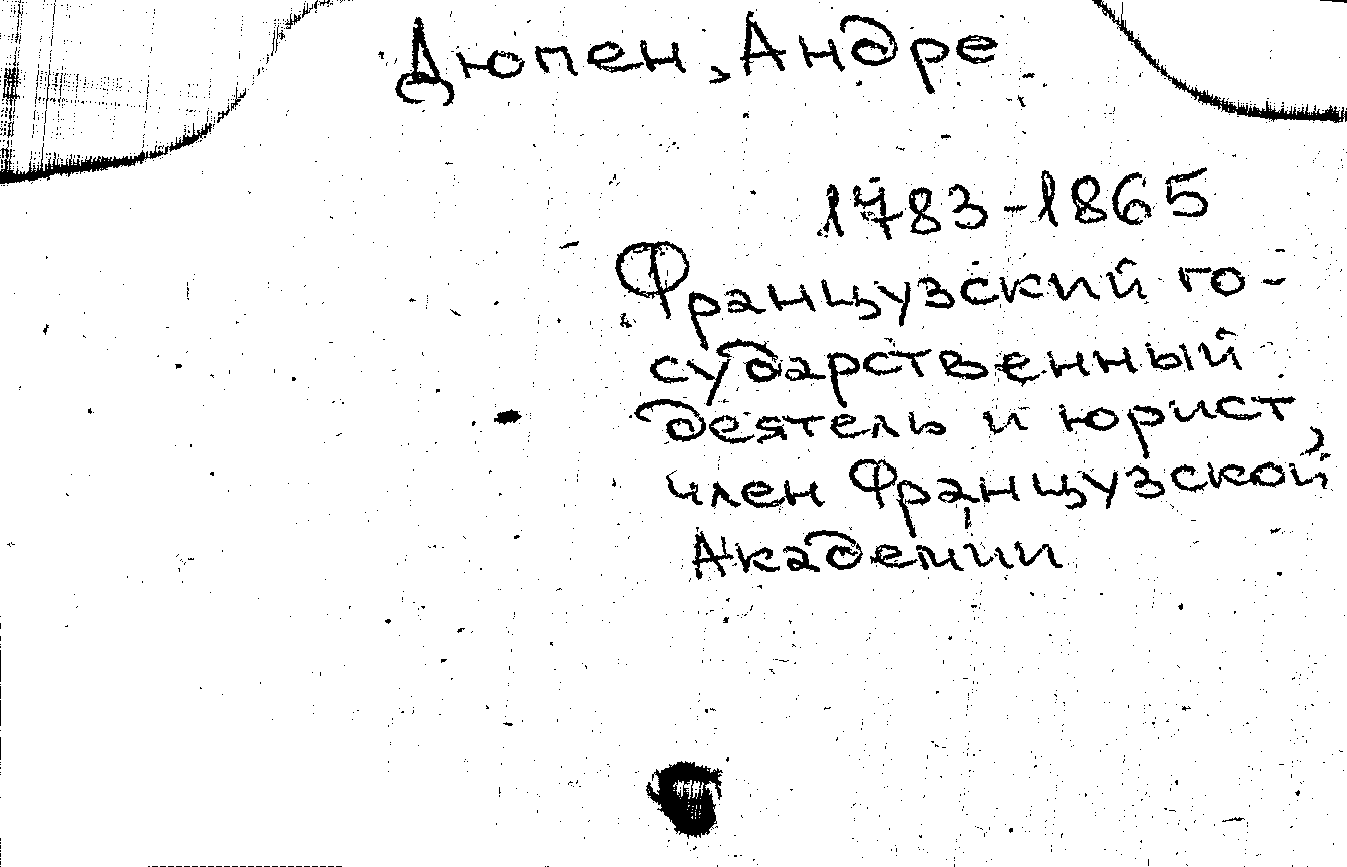 Дюпен, Андре
1783-1865
Французский го-
сударственный
деятель и юрист,
член Французской
Академии